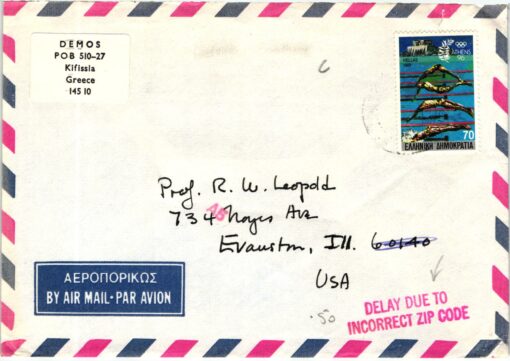 DEMOS
POB 510-27
Kifissia
Greece
145 10
HELLAS
ATHENS
96
70
ΕΛΛΗΝΙΚΗ ΔΗΜΟΚΡΑΤΙΑ
Prof. R. W. Leopold
734 Noyes Ave
Evanston, Ill. 60140
USA
ΑΕΡΟΠΟΡΙΚΩΣ
BY AIR MAIL-PAR AVION
.50
DELAY DUE TO
INCORRECT ZIP CODE